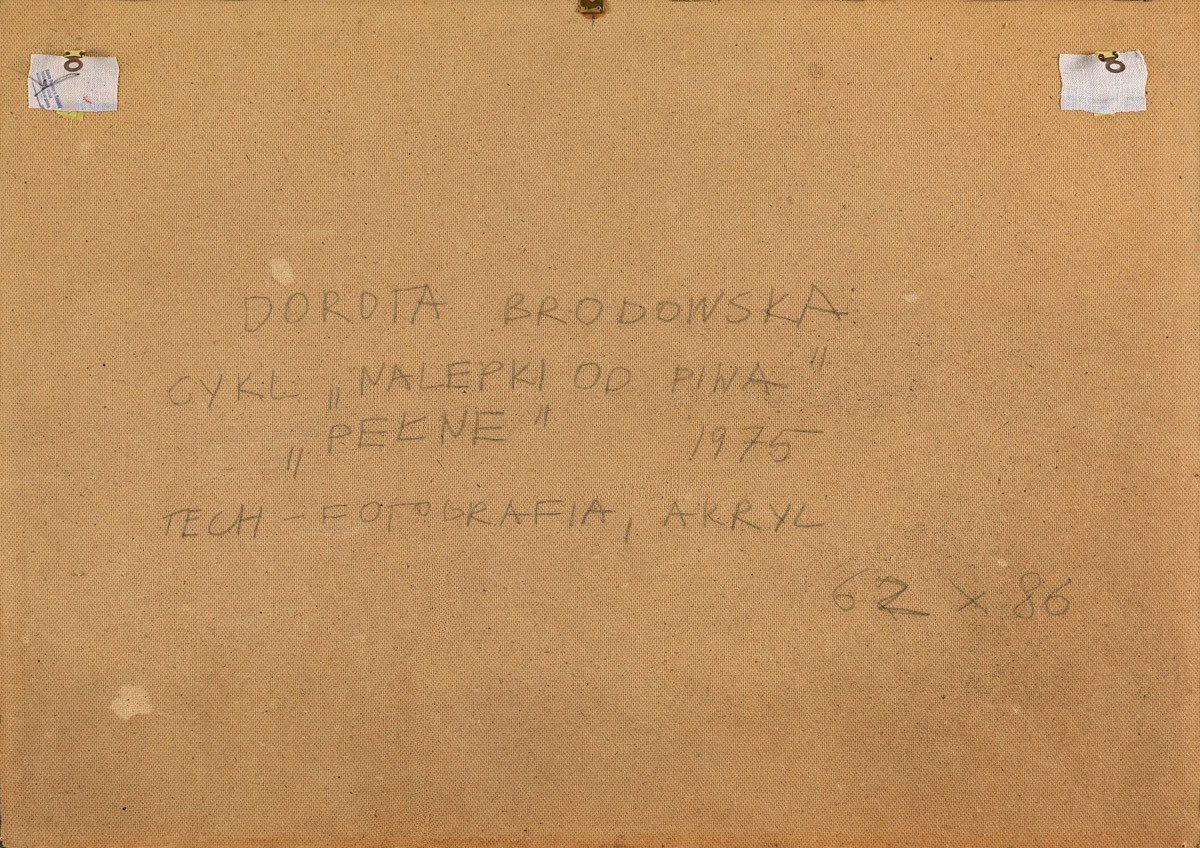 DOROTA BRODOWSKA
CYKL „NALEPKI OD PIWA"
„PEŁNE" 1975
TECH – FOTOGRAFIA, AKRYL
62 x 86